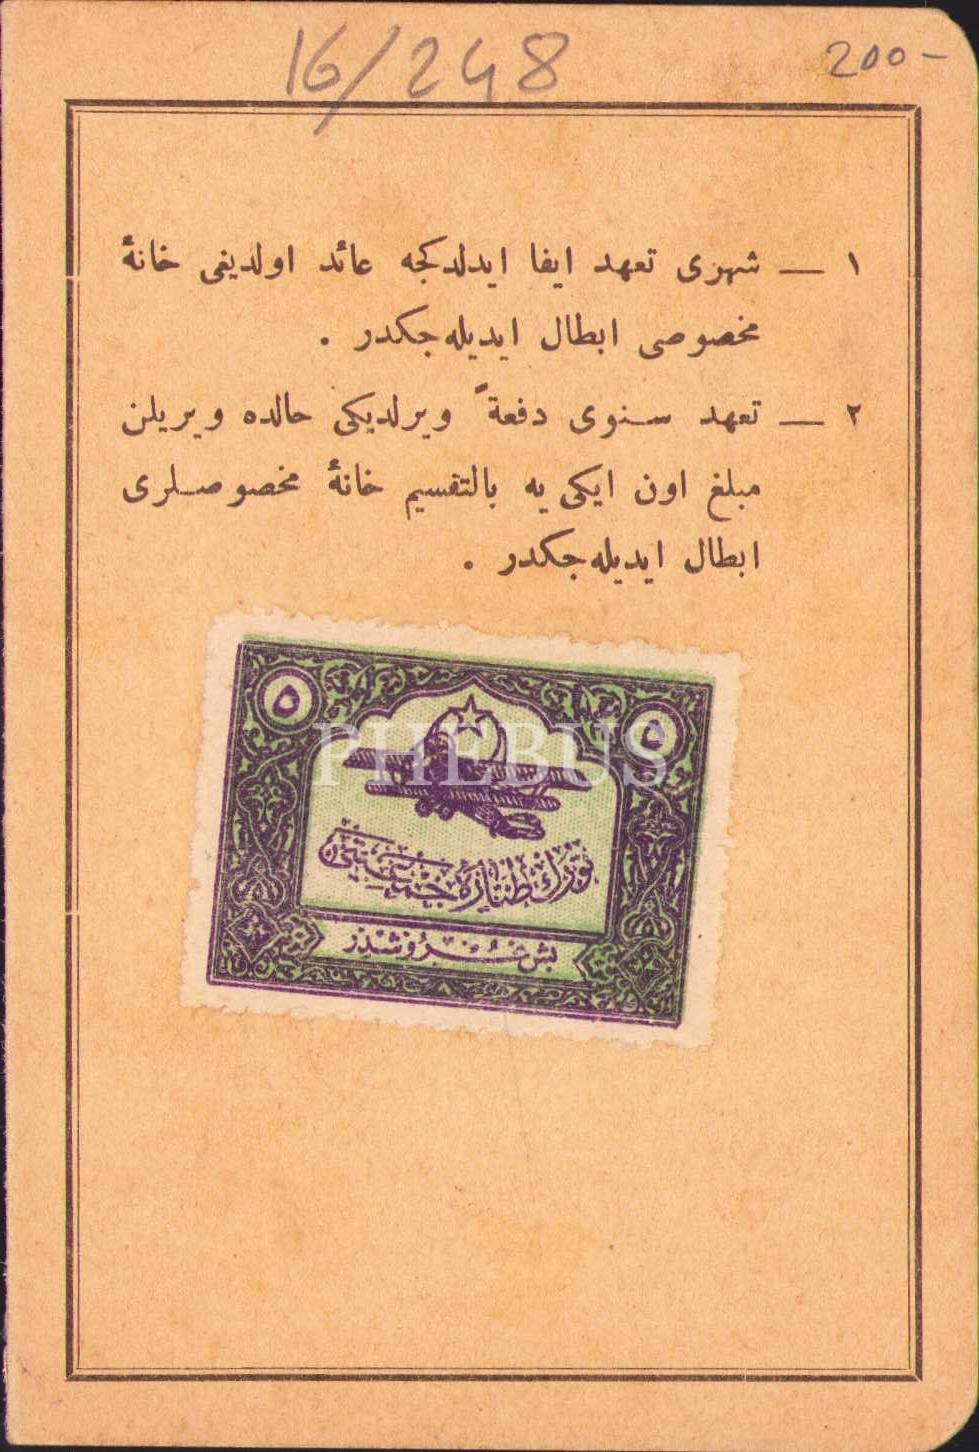 16/248
200-
١ — شهری تعهد ایفا ایدلدکجه عائد اولدیغی خانهٔ
مخصوصی ابطال ایدیله‌جکدر .
٢ — تعهد سنوی دفعةً ویرلدیکی حالده ویریلن
مبلغ اون ایکی یه بالتقسیم خانهٔ مخصوصلری
ابطال ایدیله‌جکدر .
٥ ٥
PHEBUS
تورك طیاره جمعیتی
بش غروشدر